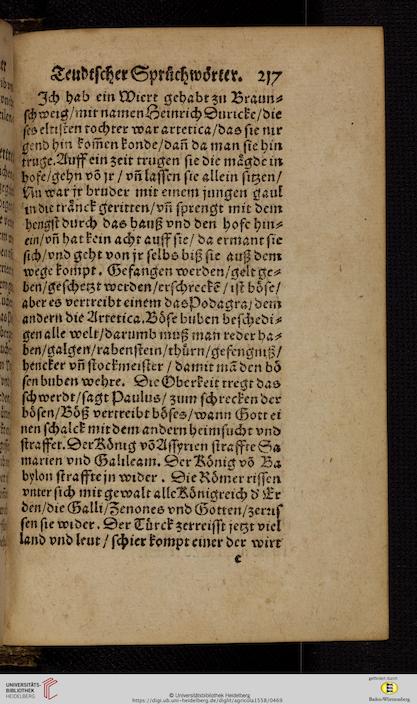 Teudtscher Sprüchwörter. 217
Ich hab ein Wiert gehabt zu Braun-
schweig/mit namen Heinrich Duricke/die
ses eltisten tochter war artetica/das sie nir
gend hin kom̃en konde/dañ da man sie hin
truge. Auff ein zeit trugen sie die mägde in
hofe/gehn võ jr/ vñ lassen sie allein sitzen/
Nu war jr bruder mit einem jungen gaul
in die tränck geritten/vñ sprengt mit dem
hengst durch das hauß vnd den hofe hin-
ein/vñ hat kein acht auff sie/ da ermant sie
sich/vnd geht von jr selbs biß sie auß dem
wege kompt. Gefangen werden/gelt ge-
ben/geschetzt werden/erschreckẽ/ ist böse/
aber es vertreibt einem das Podagra/dem
andern die Artetica. Böse buben beschedi-
gen alle welt/darumb muß man reder ha-
ben/galgen/rabenstein/thürn/gefengniß/
hencker vñ stockmeister/ damit mã den bö
sen buben wehre. Die Oberkeit tregt das
schwerdt/sagt Paulus/ zum schrecken der
bösen/Böß vertreibt böses/wann Gott ei
nen schalck mit dem andern heimsucht vnd
straffet. Der König võ Assyrien straffte Sa
marien vnd Galileam. Der König võ Ba
bylon straffte jn wider. Die Römer rissen
vnter sich mit gewalt alle Königreich ď Er
den/die Galli/Zenones vnd Gotten/zerris
sen sie wider. Der Türck zerreisst jetzt viel
land vnd leut/ schier kompt einer der wirt
e
UNIVERSITÄTS-
BIBLIOTHEK
HEIDELBERG
© Universitätsbibliothek Heidelberg
https://digi.ub.uni-heidelberg.de/diglit/agricola1558/0469
gefördert durch
Baden-Württemberg